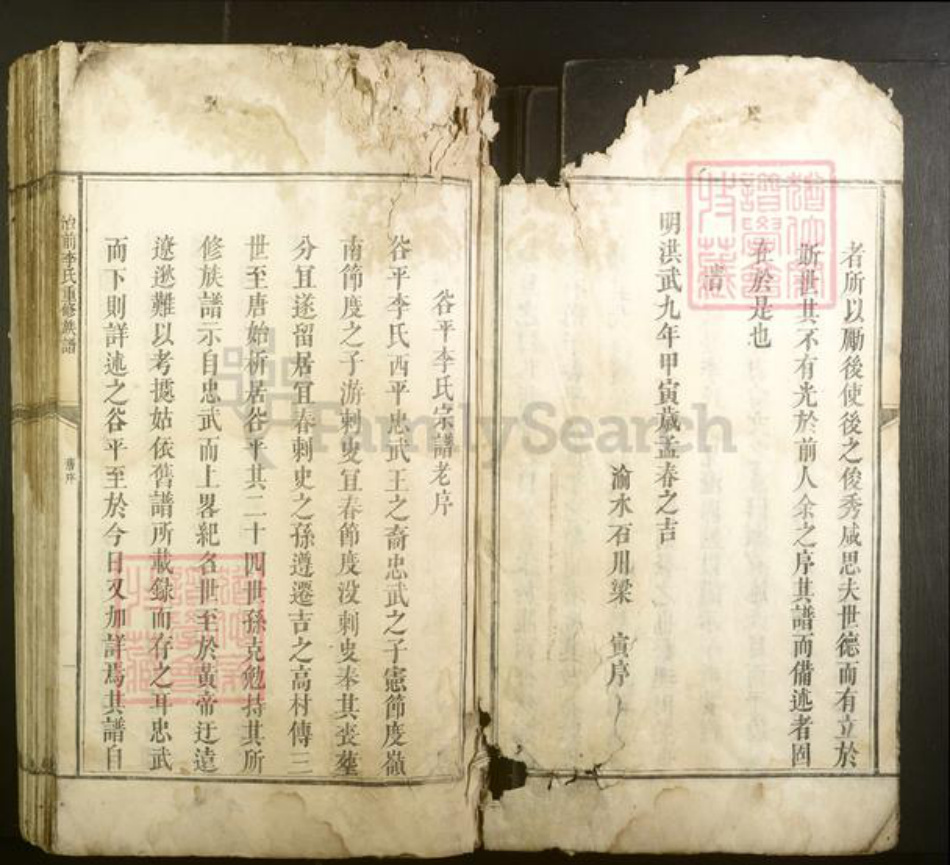 者所以勵後使後之俊秀咸思夫世德而有立於
斯世其不有光於前人余之序其譜而備述者固
在於是也
明洪武九年甲寅歲孟春之吉
渝水石川梁 寅序
谷平李氏宗譜老序
谷平李氏西平忠武王之裔忠武之子憲節度嶺
南節度之子游刺史宜春節度没刺史奉其喪塟
分宜遂留居宜春刺史之孫遵遷吉之高村傳三
世至唐始析居谷平其二十四世孫克勉持其所
修族譜示自忠武而上畧紀名世至於黃帝迂遠
遼邈難以考據姑依舊譜所載録而存之耳忠武
而下則詳述之谷平至於今日又加詳焉其譜自
治前李氏重修族譜
舊序
一
FamilySearch